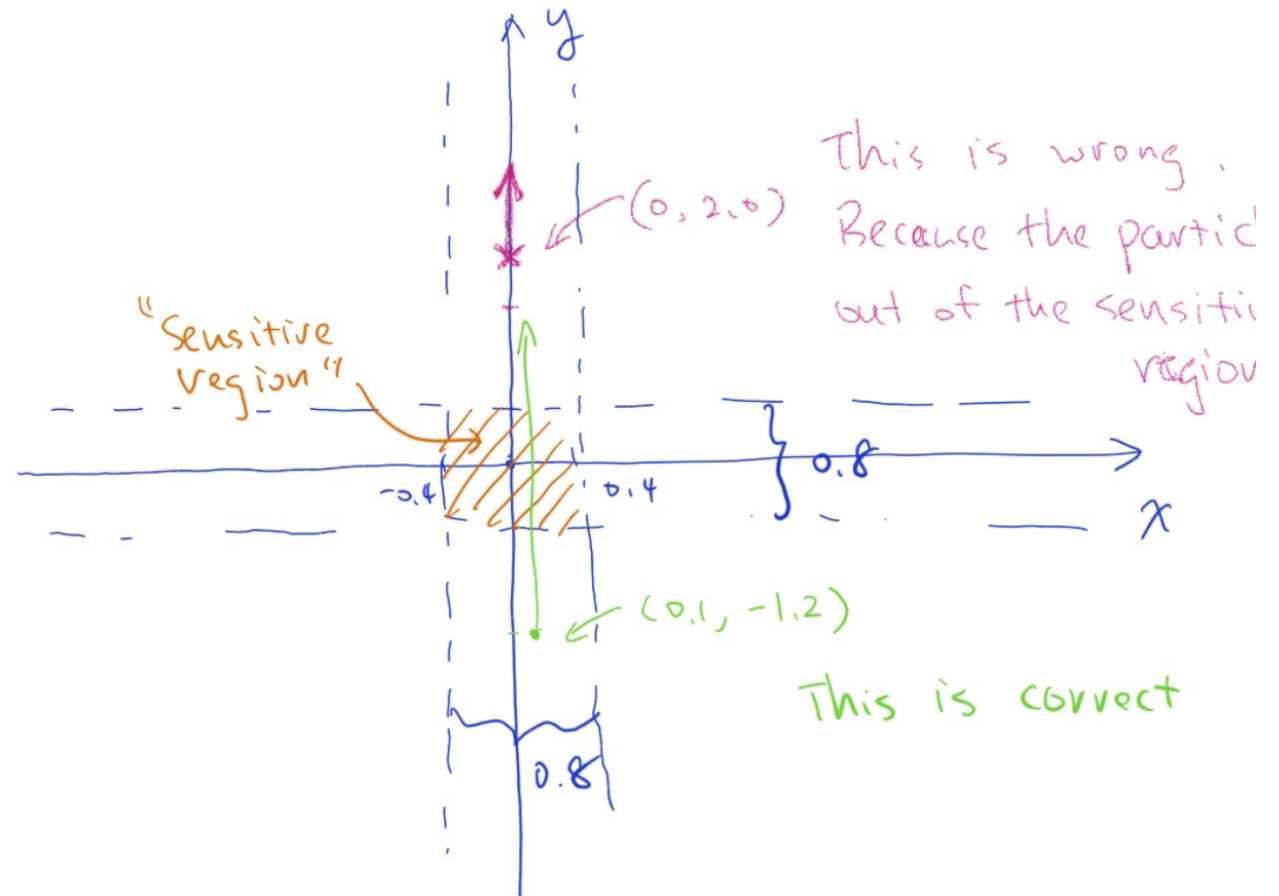 y
This is wrong.
(0, 2.0)
Because the partic
out of the sensiti
region
"Sensitive
region"
-0.4
0.4
0.8
x
(0.1, -1.2)
This is correct
0.8